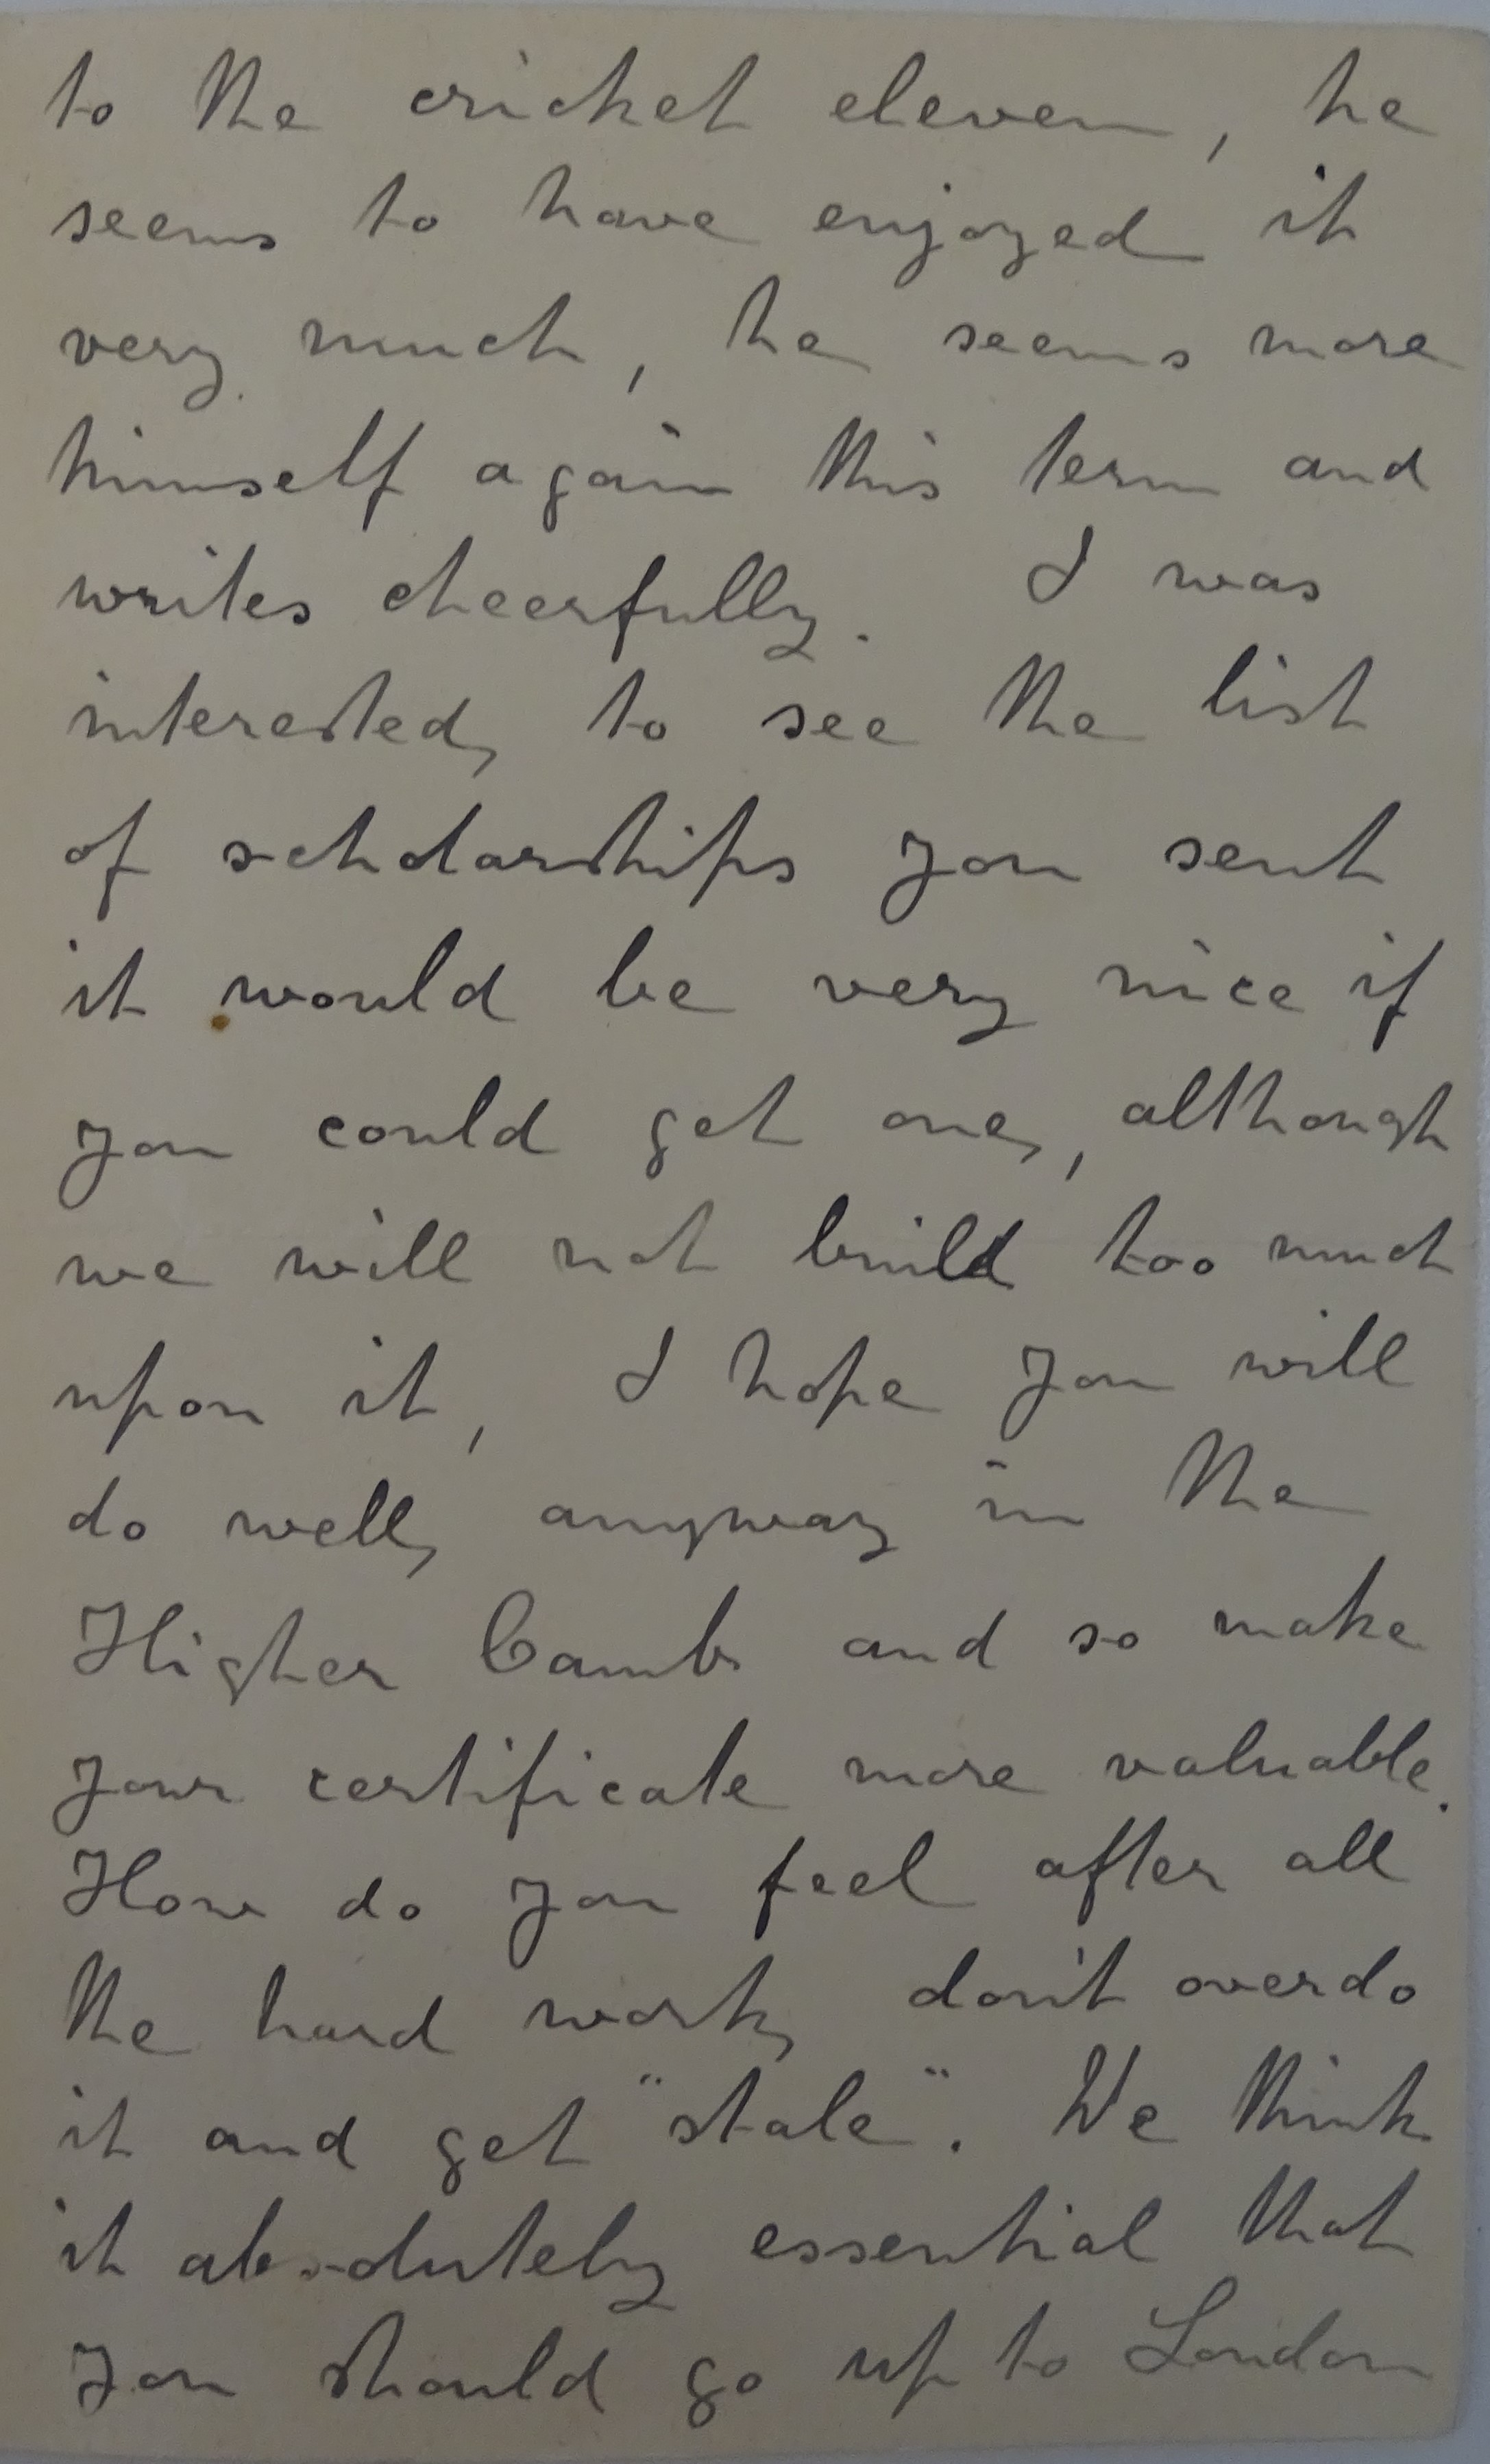 to the cricket eleven, he
seems to have enjoyed it
very much, he seems more
himself again this term and
writes cheerfully. I was
interested, to see the list
of scholarships you sent
it would be very nice if
you could get one, although
we will not build too much
upon it, I hope you will
do well, anyway in the
Higher Camb and so make
your certificate more valuable.
How do you feel after all
the hard work, don't overdo
it and get "stale". We think
it absolutely essential that
you should go up to London